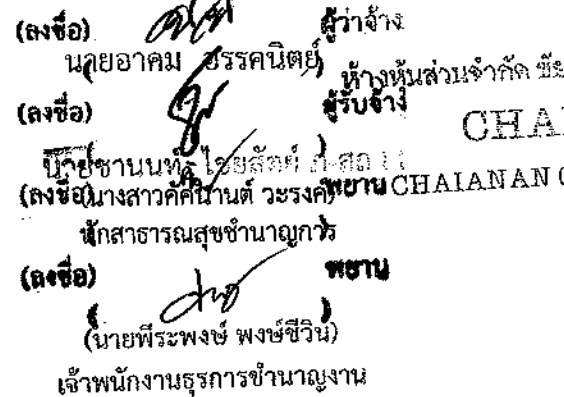 (ลงชื่อ) ผู้ว่าจ้าง
นายอาคม สรรคนิตย์
ห้างหุ้นส่วนจำกัด ชัย
(ลงชื่อ) ผู้รับจ้าง
CHAI
นายชานนท์
(ลงชื่อ) พยาน CHAIANAN
นักสาธารณสุขชำนาญการ
(ลงชื่อ) พยาน
(นายพีระพงษ์ พงษ์ชีวิน)
เจ้าพนักงานธุรการชำนาญงาน